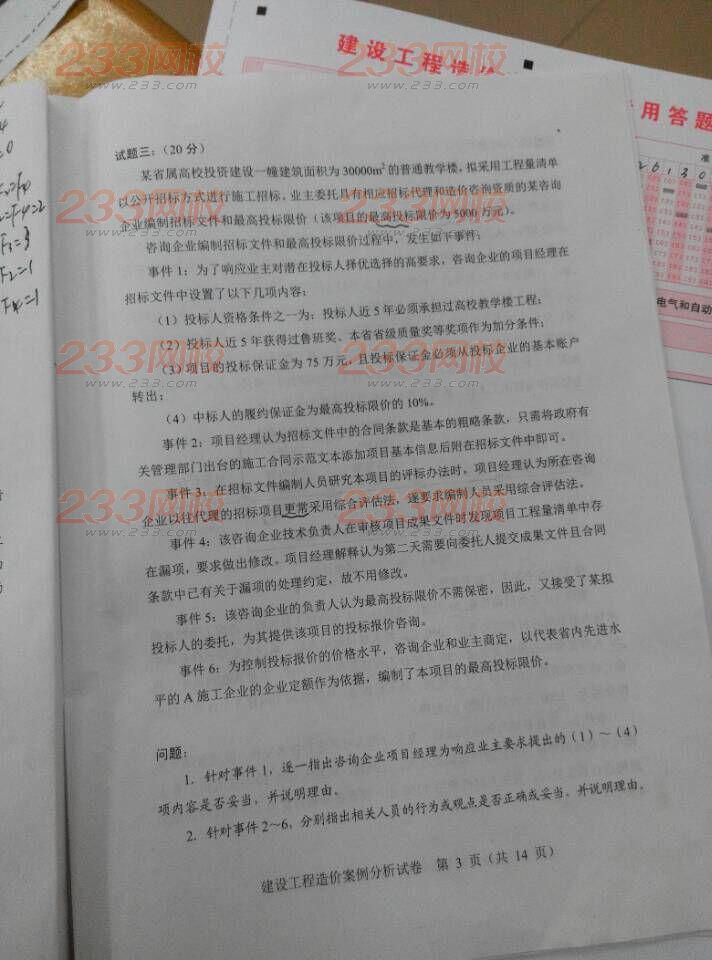 建设工程造
用答题
准
2 6 1 3 0
电气和自动
4
0
F3=3
F2=1
F4=1
试题三：（20 分）
某省属高校投资建设一幢建筑面积为 30000m²的普通教学楼，拟采用工程量清单
以公开招标方式进行施工招标。业主委托具有相应招标代理和造价咨询资质的某咨询
企业编制招标文件和最高投标限价（该项目的最高投标限价为 5000 万元）。
咨询企业编制招标文件和最高投标限价过程中，发生如下事件：
事件 1：为了响应业主对潜在投标人择优选择的高要求，咨询企业的项目经理在
招标文件中设置了以下几项内容：
（1）投标人资格条件之一为：投标人近 5 年必须承担过高校教学楼工程；
（2）投标人近 5 年获得过鲁班奖、本省省级质量奖等奖项作为加分条件；
（3）项目的投标保证金为 75 万元，且投标保证金必须从投标企业的基本账户
转出；
（4）中标人的履约保证金为最高投标限价的 10%。
事件 2：项目经理认为招标文件中的合同条款是基本的粗略条款，只需将政府有
关管理部门出台的施工合同示范文本添加项目基本信息后附在招标文件中即可。
事件 3：在招标文件编制人员研究本项目的评标办法时，项目经理认为所在咨询
企业以往代理的招标项目更常采用综合评估法，遂要求编制人员采用综合评估法。
事件 4：该咨询企业技术负责人在审核项目成果文件时发现项目工程量清单中存
在漏项，要求做出修改。项目经理解释认为第二天需要向委托人提交成果文件且合同
条款中已有关于漏项的处理约定，故不用修改。
事件 5：该咨询企业的负责人认为最高投标限价不需保密，因此，又接受了某拟
投标人的委托，为其提供该项目的投标报价咨询。
事件 6：为控制投标报价的价格水平，咨询企业和业主商定，以代表省内先进水
平的 A 施工企业的企业定额作为依据，编制了本项目的最高投标限价。
问题：
1. 针对事件 1，逐一指出咨询企业项目经理为响应业主要求提出的（1）～（4）
项内容是否妥当，并说明理由。
2. 针对事件 2～6，分别指出相关人员的行为或观点是否正确或妥当，并说明理由。
建设工程造价案例分析试卷 第 3 页（共 14 页）
233网校
www.233.com
233网校
www.233.com
233网校
www.233.com
233网校
www.233.com
233网校
www.233.com
233网校
www.233.com
233网校
www.233.com
233网校
www.233.com